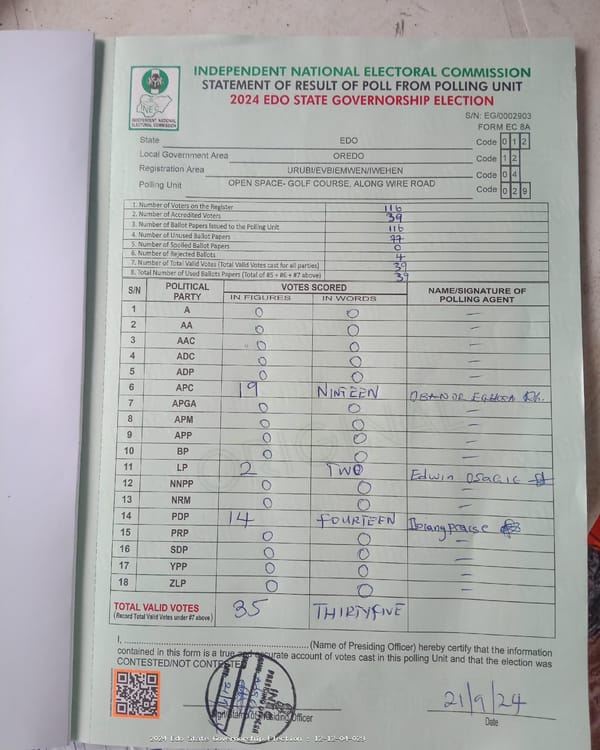 INDEPENDENT NATIONAL ELECTORAL COMMISSION
STATEMENT OF RESULT OF POLL FROM POLLING UNIT
2024 EDO STATE GOVERNORSHIP ELECTION
INEC
INDEPENDENT NATIONAL
ELECTORAL COMMISSION
S/N: EG/0002903
FORM EC 8A
State EDO Code 0 1 2
Local Government Area OREDO Code 1 2
Registration Area URUBI/EVBIEMWEN/IWEHEN Code 0 4
Polling Unit OPEN SPACE- GOLF COURSE, ALONG WIRE ROAD Code 0 2 9
1. Number of Voters on the Register 116
2. Number of Accredited Voters 39
3. Number of Ballot Papers Issued to the Polling Unit 116
4. Number of Unused Ballot Papers 77
5. Number of Spoiled Ballot Papers 0
6. Number of Rejected Ballots 4
7. Number of Total Valid Votes (Total Valid Votes cast for all parties) 39
8. Total Number of Used Ballots Papers (Total of #5 + #6 + #7 above) 39
S/N POLITICAL PARTY VOTES SCORED NAME/SIGNATURE OF POLLING AGENT
IN FIGURES IN WORDS
1 A 0 0 —
2 AA 0 0 —
3 AAC 0 0 —
4 ADC 0 0 —
5 ADP 0 0 —
6 APC 19 NINTEEN
7 APGA 0 0 —
8 APM 0 0 —
9 APP 0 0 —
10 BP 0 0 —
11 LP 2 TWO Edwin Osagie
12 NNPP 0 0 —
13 NRM 0 0 —
14 PDP 14 FOURTEEN
15 PRP 0 0 —
16 SDP 0 0 —
17 YPP 0 0 —
18 ZLP 0 0 —
TOTAL VALID VOTES 35 THIRTYFIVE
(Record Total Valid Votes under #7 above)
I, ........................ (Name of Presiding Officer) hereby certify that the information
contained in this form is a true and accurate account of votes cast in this polling Unit and that the election was
CONTESTED/NOT CONTESTED
21/9/24
Date
2024 Edo State Governorship Election : 12-12-04-029